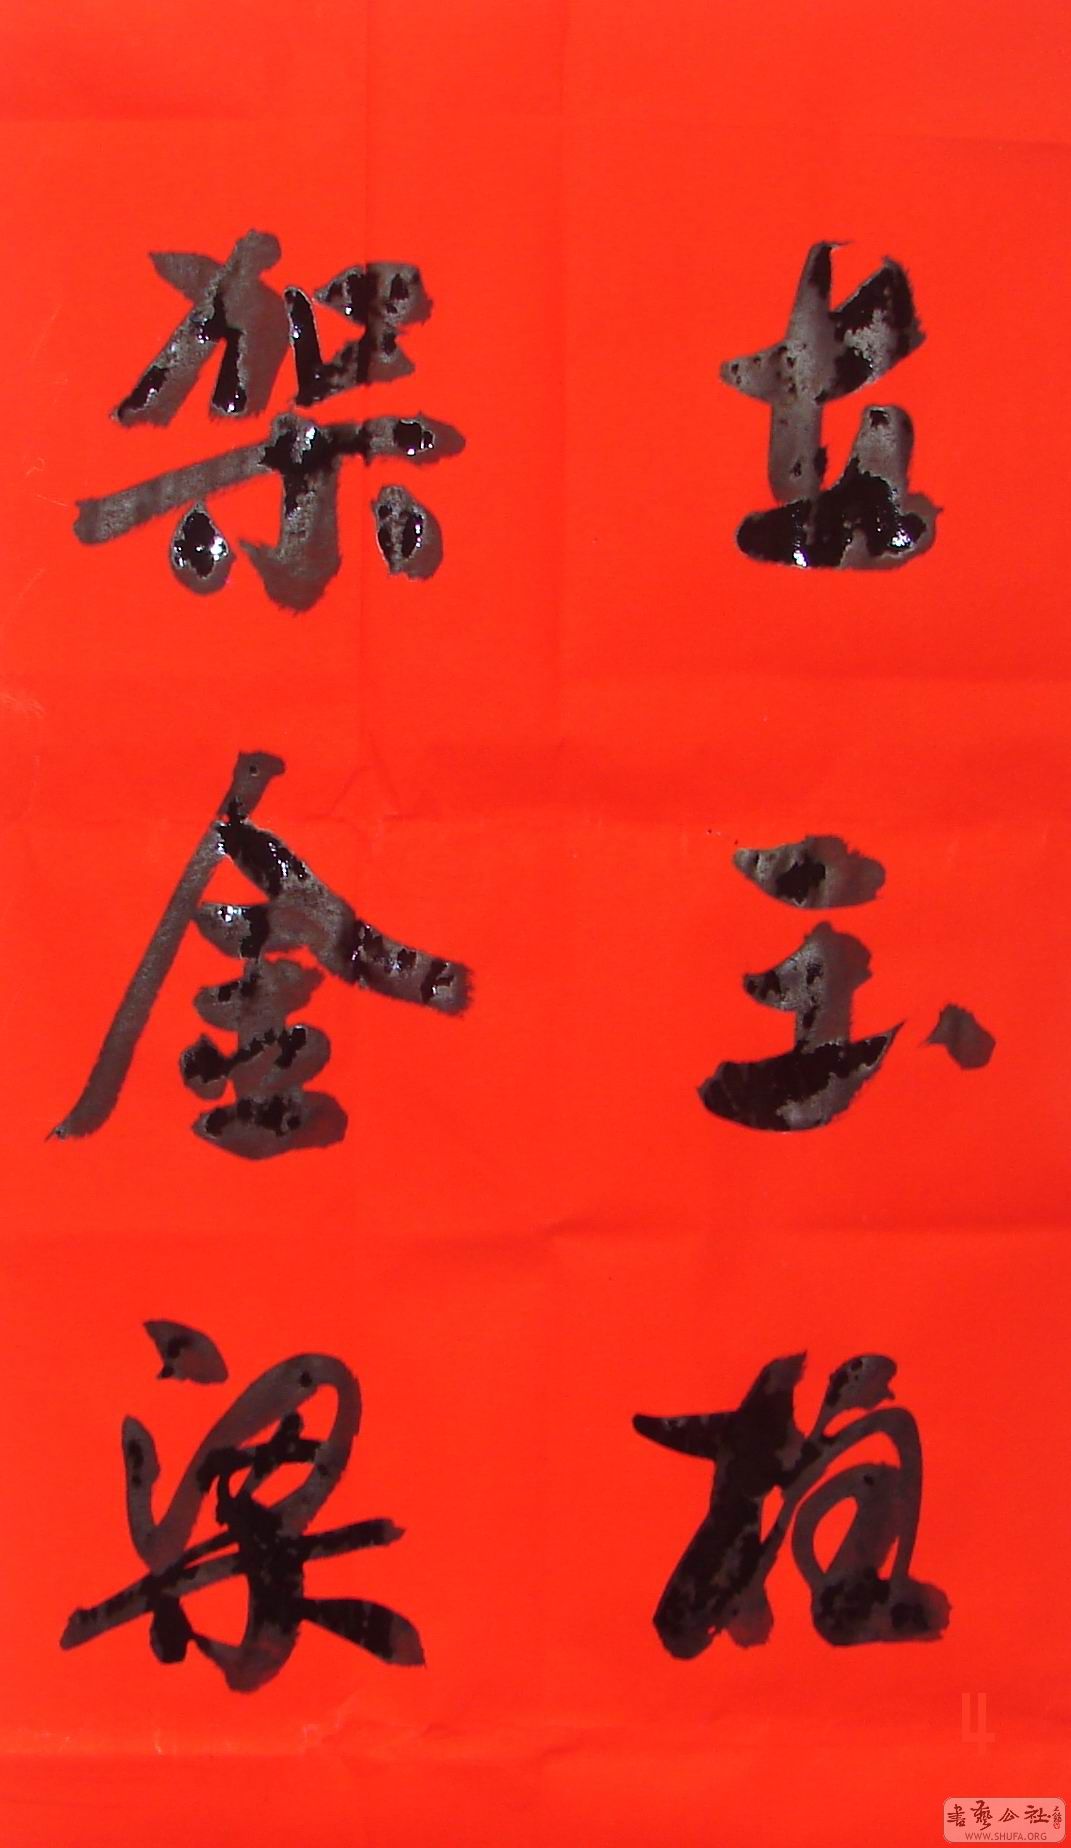 立玉柱
架金梁
書藝公社
WWW.SHUFA.ORG